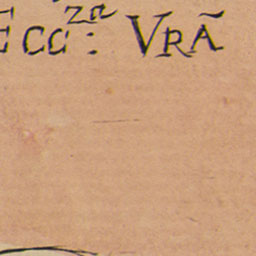 Ecc.ᶻᵃ: Vrã